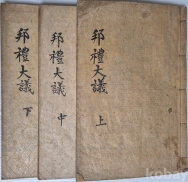 邦禮大議
上
邦禮大議
中
邦禮大議
下
kobay